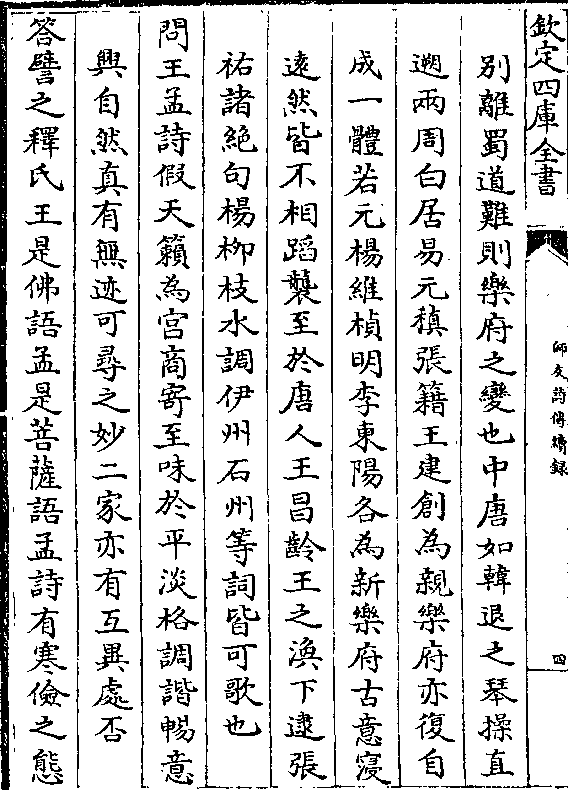 欽定四庫全書
師友詩傳續錄
四
別離蜀道難則樂府之變也中唐如韓退之琴操直
遡兩周白居易元稹張籍王建創為親樂府亦復自
成一體若元楊維楨明李東陽各為新樂府古意寖
遠然皆不相蹈襲至於唐人王昌齡王之渙下逮張
祐諸絶句楊柳枝水調伊州石州等詞皆可歌也
問王孟詩假天籟為宫商寄至味於平淡格調諧暢意
興自然真有無迹可尋之妙二家亦有互異處否
答譬之釋氏王是佛語孟是菩薩語孟詩有寒儉之態